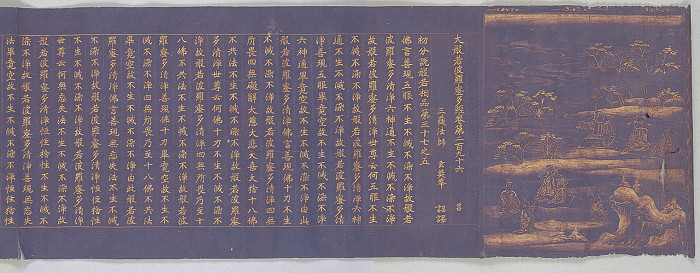 大般若波羅蜜多經卷第二百九十六 呂
三藏法師 玄奘奉 詔譯
初分說般若相品第三十七之五
佛言善現五眼不生不滅不染不淨故般若
波羅蜜多清淨六神通不生不滅不染不淨
故般若波羅蜜多清淨世尊云何五眼不生
不滅不染不淨故般若波羅蜜多清淨六神
通不生不滅不染不淨故般若波羅蜜多清
淨善現五眼畢竟空故不生不滅不染不淨
六神通畢竟空故不生不滅不染不淨由此
般若波羅蜜多清淨佛言善現佛十力不生
不滅不染不淨故般若波羅蜜多清淨四無
所畏四無礙解大慈大悲大喜大捨十八佛
不共法不生不滅不染不淨故般若波羅蜜
多清淨世尊云何佛十力不生不滅不染不
淨故般若波羅蜜多清淨四無所畏乃至十
八佛不共法不生不滅不染不淨故般若波
羅蜜多清淨善現佛十力畢竟空故不生不
滅不染不淨四無所畏乃至十八佛不共法
畢竟空故不生不滅不染不淨由此般若波
羅蜜多清淨佛言善現無忘失法不生不滅
不染不淨故般若波羅蜜多清淨恒住捨性
不生不滅不染不淨故般若波羅蜜多清淨
世尊云何無忘失法不生不滅不染不淨故
般若波羅蜜多清淨恒住捨性不生不滅不
染不淨故般若波羅蜜多清淨善現無忘失
法畢竟空故不生不滅不染不淨恒住捨性